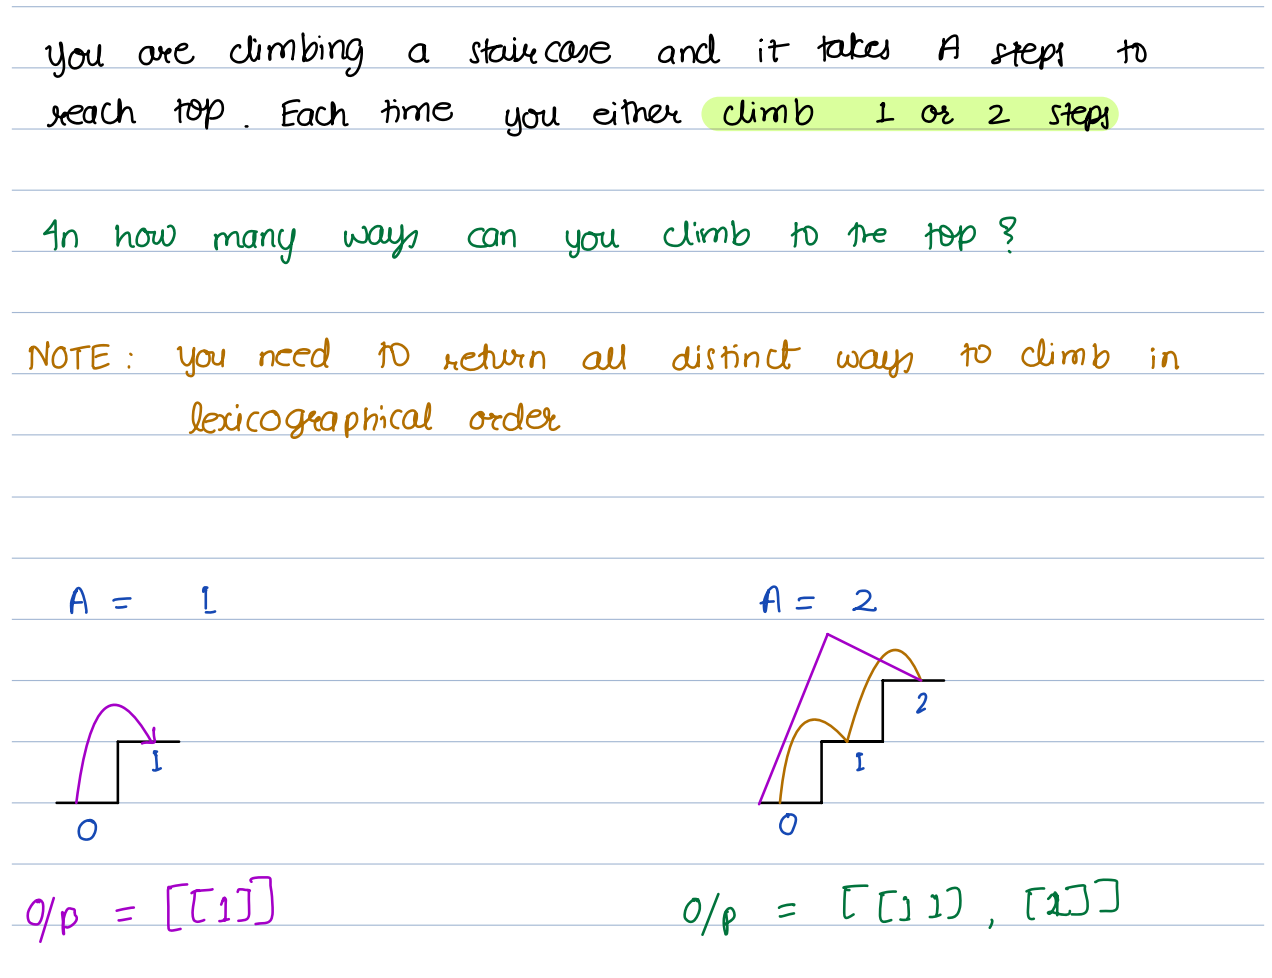 you are climbing a staircase and it takes A steps to
reach top. Each time you either climb 1 or 2 steps
In how many ways can you climb to the top?
NOTE: you need to return all distinct ways to climb in
lexicographical order
A = 1
A = 2
2
1
1
0
0
O/p = [[1]]
O/p = [[1 1], [2]]